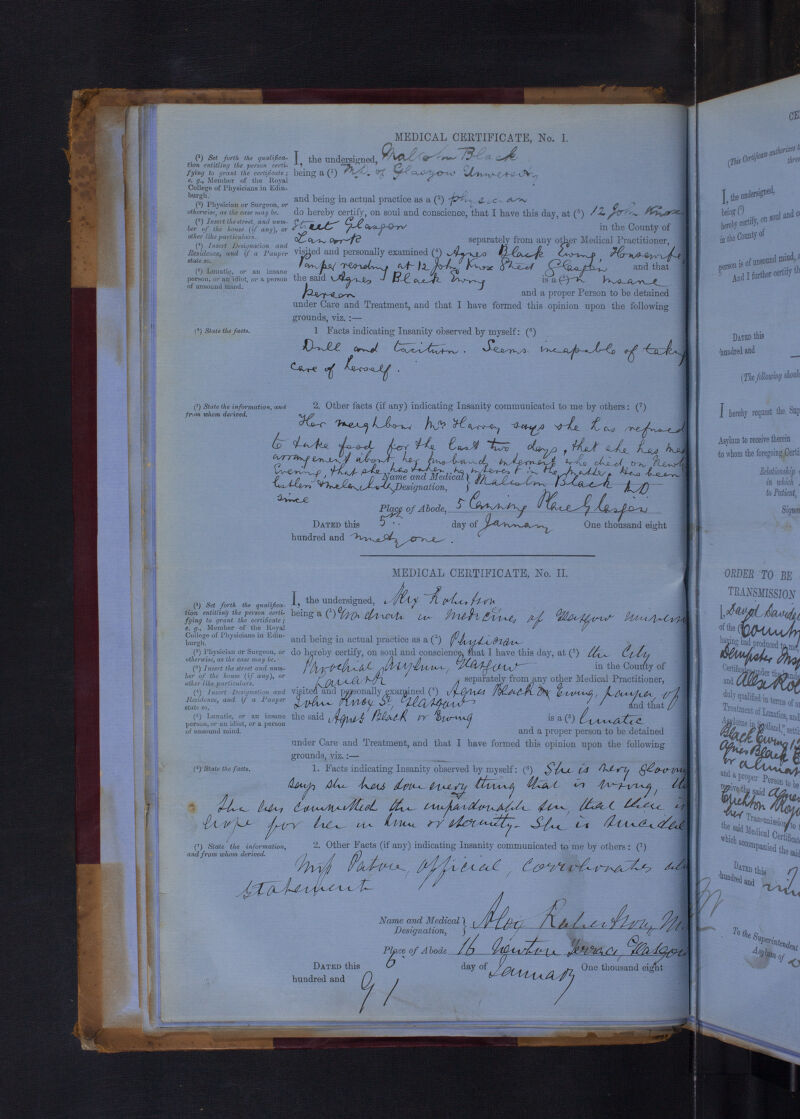 MEDICAL CERTIFICATE, No. I.
(¹) Set forth the qualifica-
tion entitling the person certi-
fying to grant the certificate;
e. g., Member of the Royal
College of Physicians in Edin-
burgh.
(²) Physician or Surgeon, or
otherwise, as the case may be.
(³) Insert the street, and num-
ber of the house (if any), or
other like particulars.
(⁴) Insert Designation and
Residence, and if a Pauper
state so.
(⁵) Lunatic, or an insane
person, or an idiot, or a person
of unsound mind.
I, the undersigned, Malcolm Black
being a (¹) M.D. of Glasgow University
and being in actual practice as a (²) physician
do hereby certify, on soul and conscience, that I have this day, at (³) 12 John Knox
Street Glasgow in the County of
Lanark separately from any other Medical Practitioner,
visited and personally examined (⁴) Agnes Black or Ewing, Housewife,
Pauper residing at 12 John Knox Street Glasgow and that
the said Agnes Black Ewing is a (⁵) n insane
person and a proper Person to be detained
under Care and Treatment, and that I have formed this opinion upon the following
grounds, viz. :—
(⁶) State the facts.
1 Facts indicating Insanity observed by myself: (⁶)
Dull and taciturn. Seems incapable of taking
care of herself.
(⁷) State the information, and
from whom derived.
2. Other facts (if any) indicating Insanity communicated to me by others: (⁷)
Her neighbour Mrs Harvey says she has refused
to take food for the last two days, that she has made
arrangement about her husband's interment who died on
Evening, that she has taken no interest in the matter. Has been
listless & melancholic
since
Name and Medical Designation, Malcolm Black MD
Place of Abode, 5 Canning Place Glasgow
DATED this 5th day of January One thousand eight
hundred and ninety one.
MEDICAL CERTIFICATE, No. II.
(¹) Set forth the qualifica-
tion entitling the person certi-
fying to grant the certificate;
e. g., Member of the Royal
College of Physicians in Edin-
burgh.
(²) Physician or Surgeon, or
otherwise, as the case may be.
(³) Insert the street and num-
ber of the house (if any), or
other like particulars.
(⁴) Insert Designation and
Residence, and if a Pauper
state so.
(⁵) Lunatic, or an insane
person, or an idiot, or a person
of unsound mind.
I, the undersigned, Alex Robertson
being a (¹) Graduate in Medicine, of Glasgow
and being in actual practice as a (²) Physician
do hereby certify, on soul and conscience, that I have this day, at (³) the City
Parochial Asylum, Glasgow in the County of
Lanark separately from any other Medical Practitioner,
visited and personally examined (⁴) Agnes Black or Ewing, pauper, of
John Knox St, Glasgow and that
the said Agnes Black or Ewing is a (⁵) lunatic
and a proper person to be detained
under Care and Treatment, and that I have formed this opinion upon the following
grounds, viz. :—
(⁶) State the facts.
1. Facts indicating Insanity observed by myself: (⁶) She is very
says she has done every thing that is wrong,
she has committed the unpardonable sin, that there is
hope for her in time or eternity. She is suicidal
(⁷) State the information,
and from whom derived.
2. Other Facts (if any) indicating Insanity communicated to me by others: (⁷)
official, corroborates
statement
Name and Medical Designation, Alex Robertson, M
Place of Abode 16 Newton Terrace, Glasgow
DATED this 6 day of January One thousand eight
hundred and 91
I, the undersigned,
being (¹)
hereby certify, on soul and
in the County of
person is of unsound mind,
And I further certify
DATED this
hundred and
(The following
I hereby request the
Asylum to receive therein
to whom the foregoing
Relationship
in which
to Patient,
ORDER TO BE
TRANSMISSION
I, David
of the County
having had produced to
Dempster
and Alex
duly qualified in terms of
Treatment of Lunatics, and
Black Ewing
Agnes Black
or a lunatic
and a proper Person to be
Crichton Royal
her Transmission to
the said Medical
which accompanied the said
DATED this 7
hundred and
To the Superintendent
Asylum of